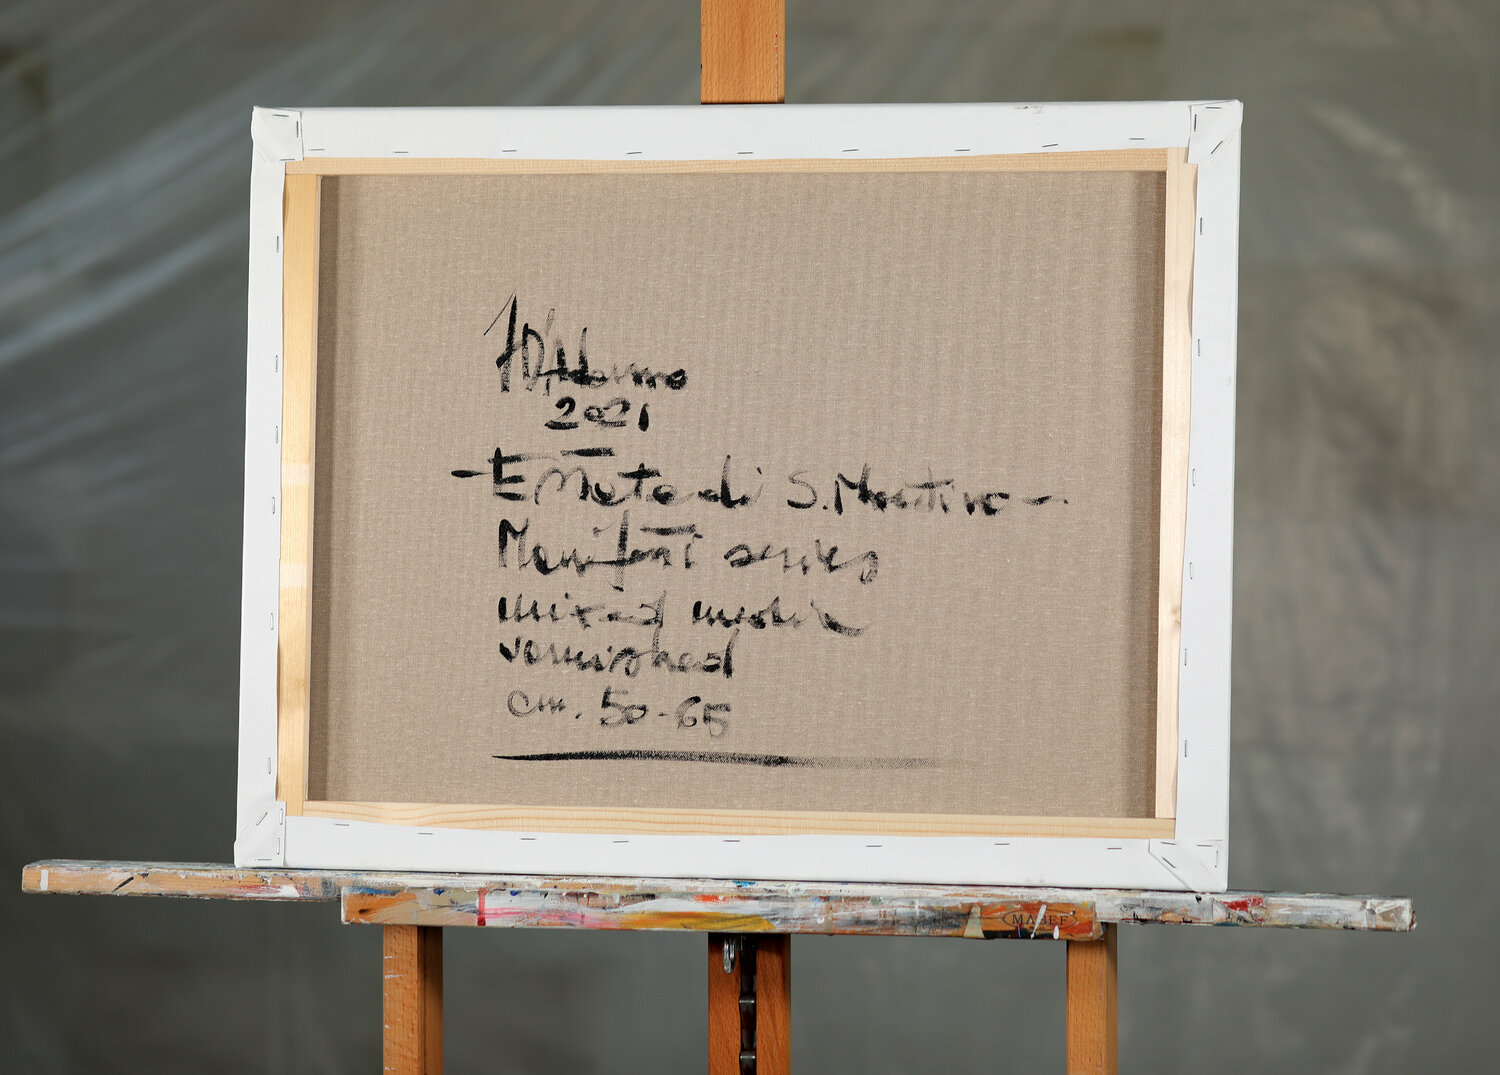 2021
- Estate di S. Martino -
Manifesti series
mixed media
varnished
cm. 50-65
MABEF